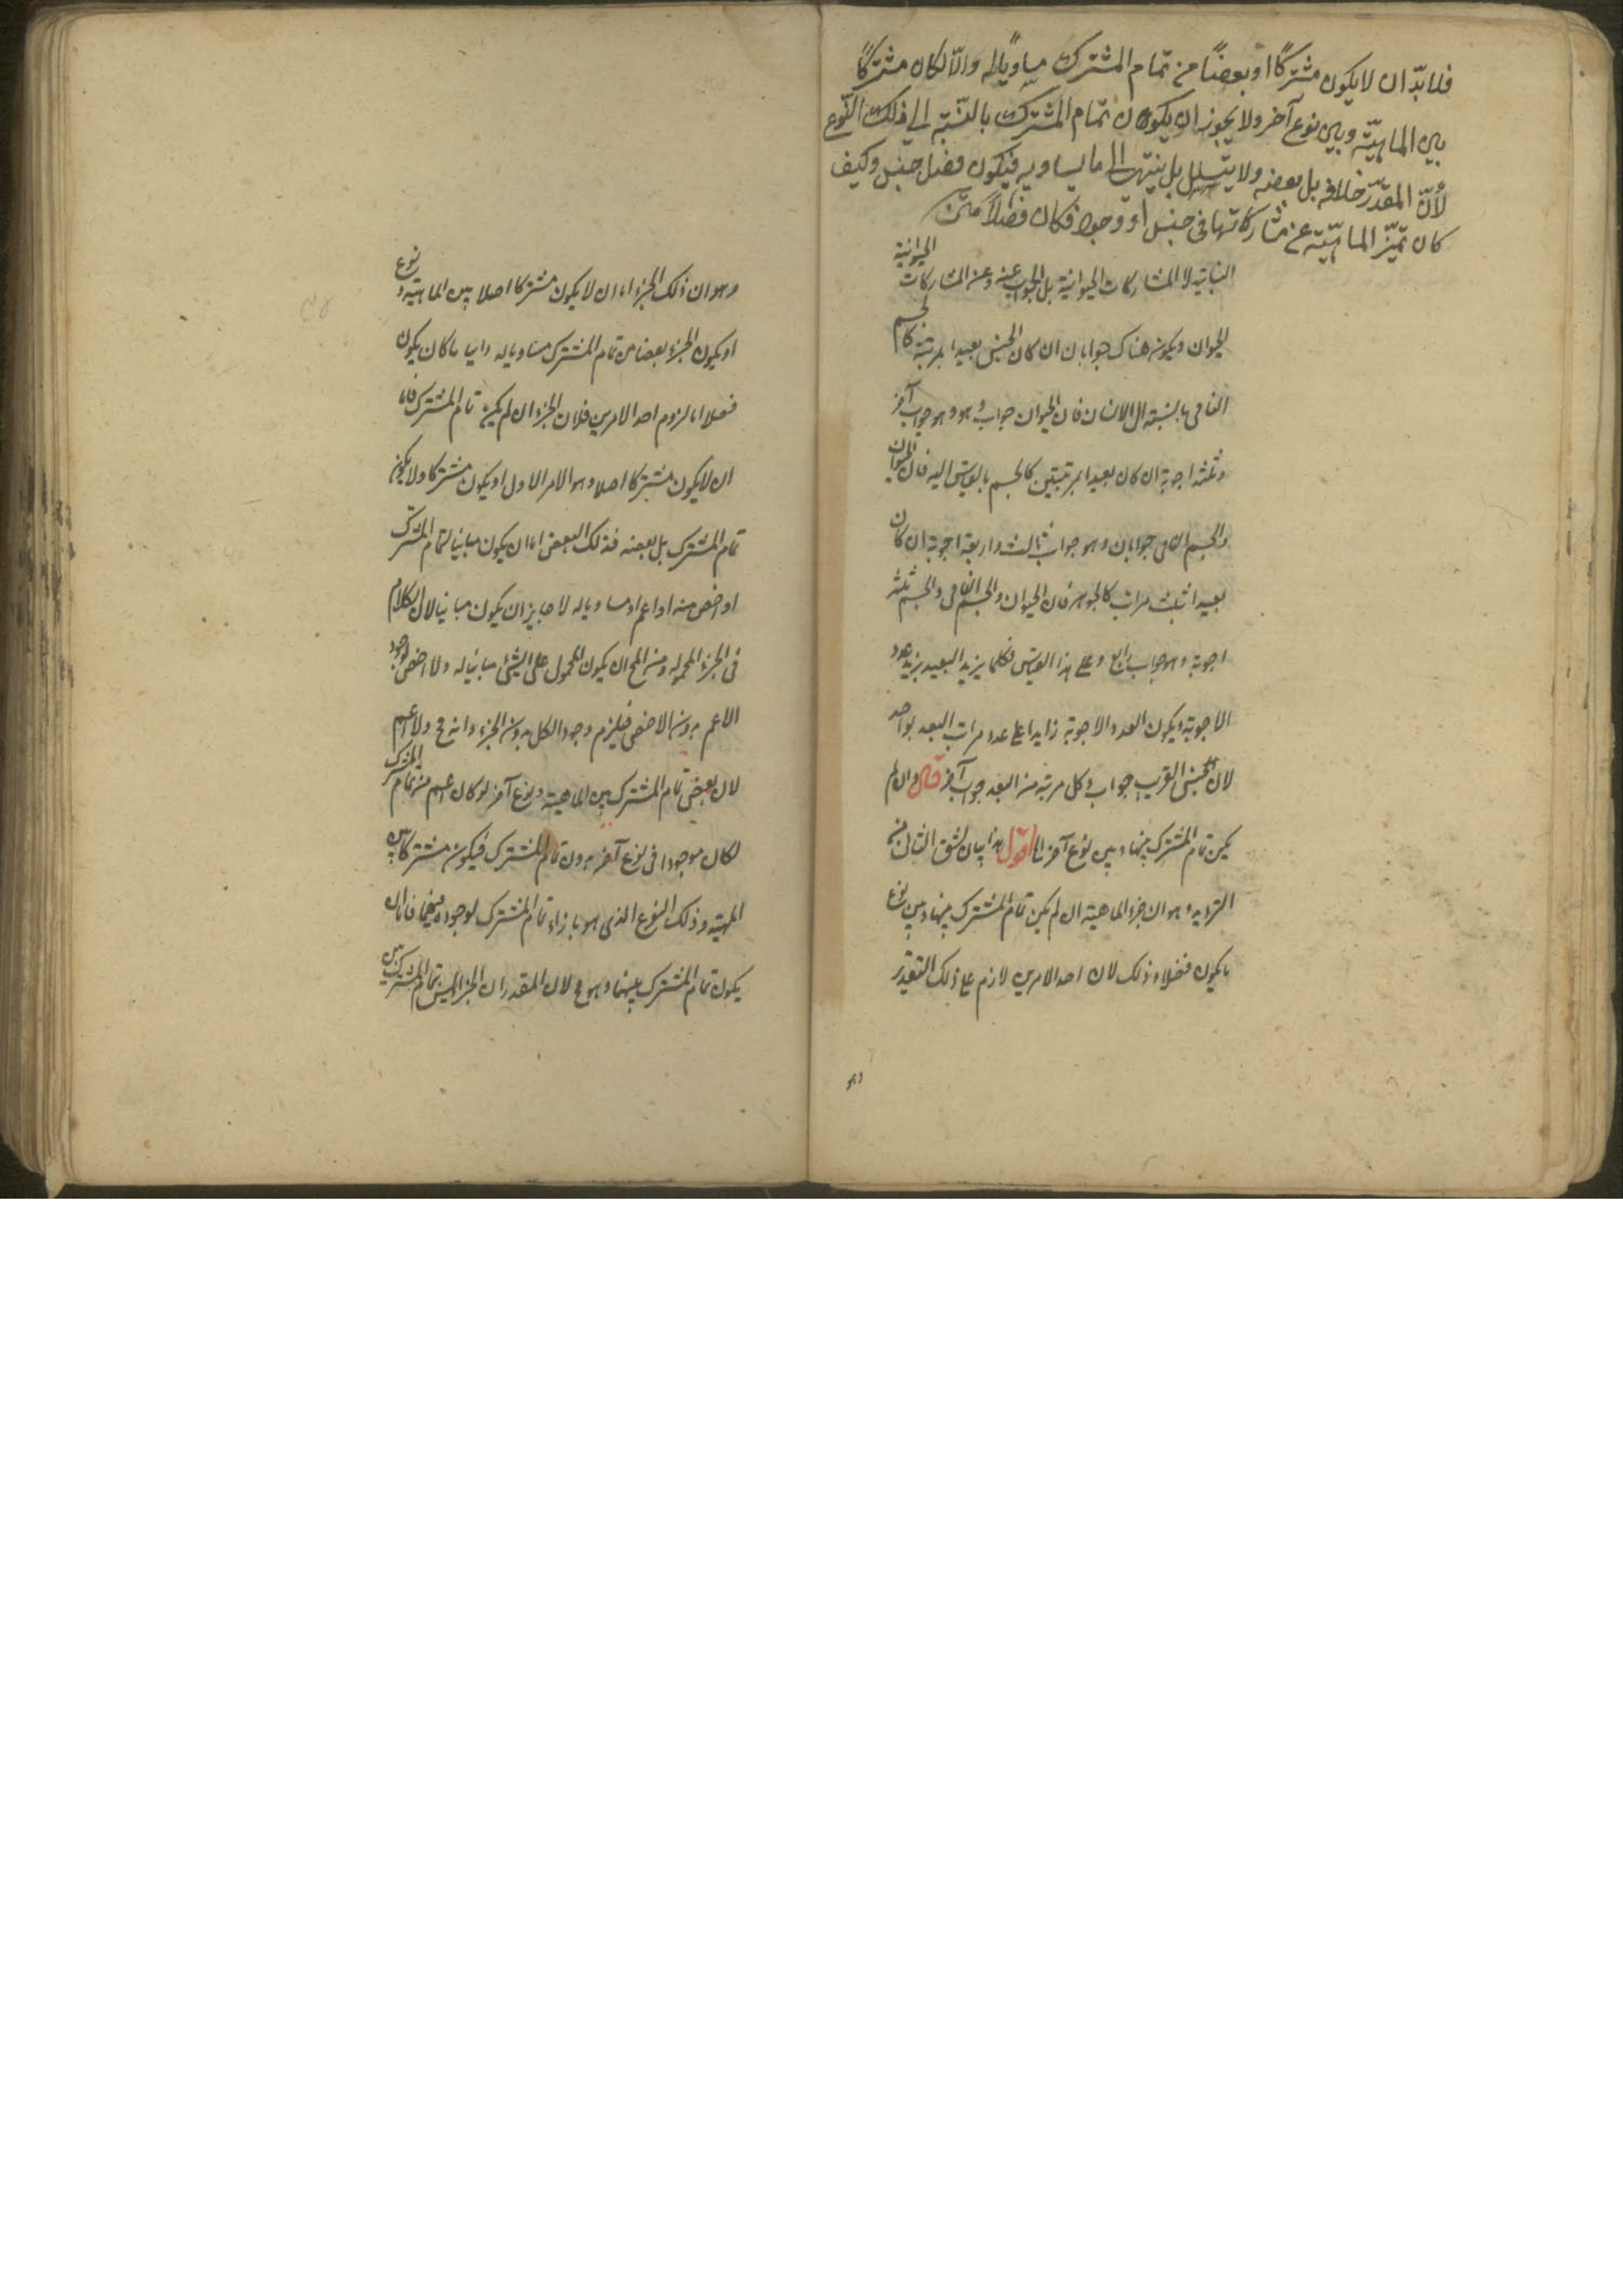 فلا بدّ ان لا يكون مشتركًا او بعضًا من تمام المشترك مساويًا له والّا لكان مشتركًا
بين الماهيّة وبين نوع آخر ولا يجوز ان يكون تمام المشترك بالنّسبة الى ذلك النّوع
لأنّ المقدّر خلافه بل بعضه ولا يتسلسل بل ينتهى الى ما يساويه فيكون فصل جنس وكيف
كان تميّز الماهيّة عن مشاركاتها فى جنس او وجود فكان فصلًا متن
النباتية لا المشاركات الحيوانية بل الجواب عنه وعن المشاركات الحيوانية
الحيوان ويكون هناك جوابان ان كان الجنس بعيدا بمرتبة كالجسم
النامى بالنسبة الى الانسان فان الحيوان جواب وهو جواب آخر
وثلثة اجوبة ان كان بعيدا بمرتبتين كالجسم بالقياس اليه فان الحيوان
والجسم النامى جوابان وهو جواب ثالث واربعة اجوبة ان كان
بعيدا بثلث مراتب كالجوهر فان الحيوان والجسم النامى والجسم ثلثة
اجوبة وهو جواب رابع وعلى هذا القياس فكلما يزيد البعد يزيد عدد
الاجوبة ويكون العدد الاجوبة زايدا على عدد مراتب البعد بواحد
لان الجنس القريب جواب وكل مرتبة من البعد جواب آخر قال وان لم
يكن تمام المشترك بينها وبين نوع آخر الخ اقول هذا بيان لشق الثانى من
الترديد وهو ان جزء الماهية ان لم يكن تمام المشترك بينها وبين نوع
ما يكون فصلا وذلك لان احد الامرين لازم على ذلك التقدير
وهو
وهو ان ذلك الجزء اما ان لا يكون مشتركا اصلا بين الماهية ونوع
او يكون الجزء بعضا من تمام المشترك مساويا له وايا ما كان يكون
فصلا اما لزوم احد الامرين فلان الجزء ان لم يكن تمام المشترك فاما
ان لا يكون مشتركا اصلا وهو الامر الاول او يكون مشتركا ولا يكون
تمام المشترك بل بعضه فذلك البعض اما ان يكون مباينا لتمام المشترك
او اخص منه او اعم او مساويا له لا جايز ان يكون مباينا لان الكلام
فى الجزء المحموله ومن المح ان يكون المحمول على الشئ مباينا له ولا اخص لوجود
الاعم بدون الاخص فيلزم وجود الكل بدون الجزء وانه مح ولا اعم
لان بعض تمام المشترك بين الماهية ونوع آخر لو كان اعم من تمام المشترك
لكان موجودا فى نوع آخر بدون تمام المشترك فيكون مشتركا بين
المهية وذلك النوع الذى هو بازاء تمام المشترك لوجوده فيهما فاما ان
يكون تمام المشترك بينهما وهو مح لان المقدر ان الجزء ليس تمام المشترك بين